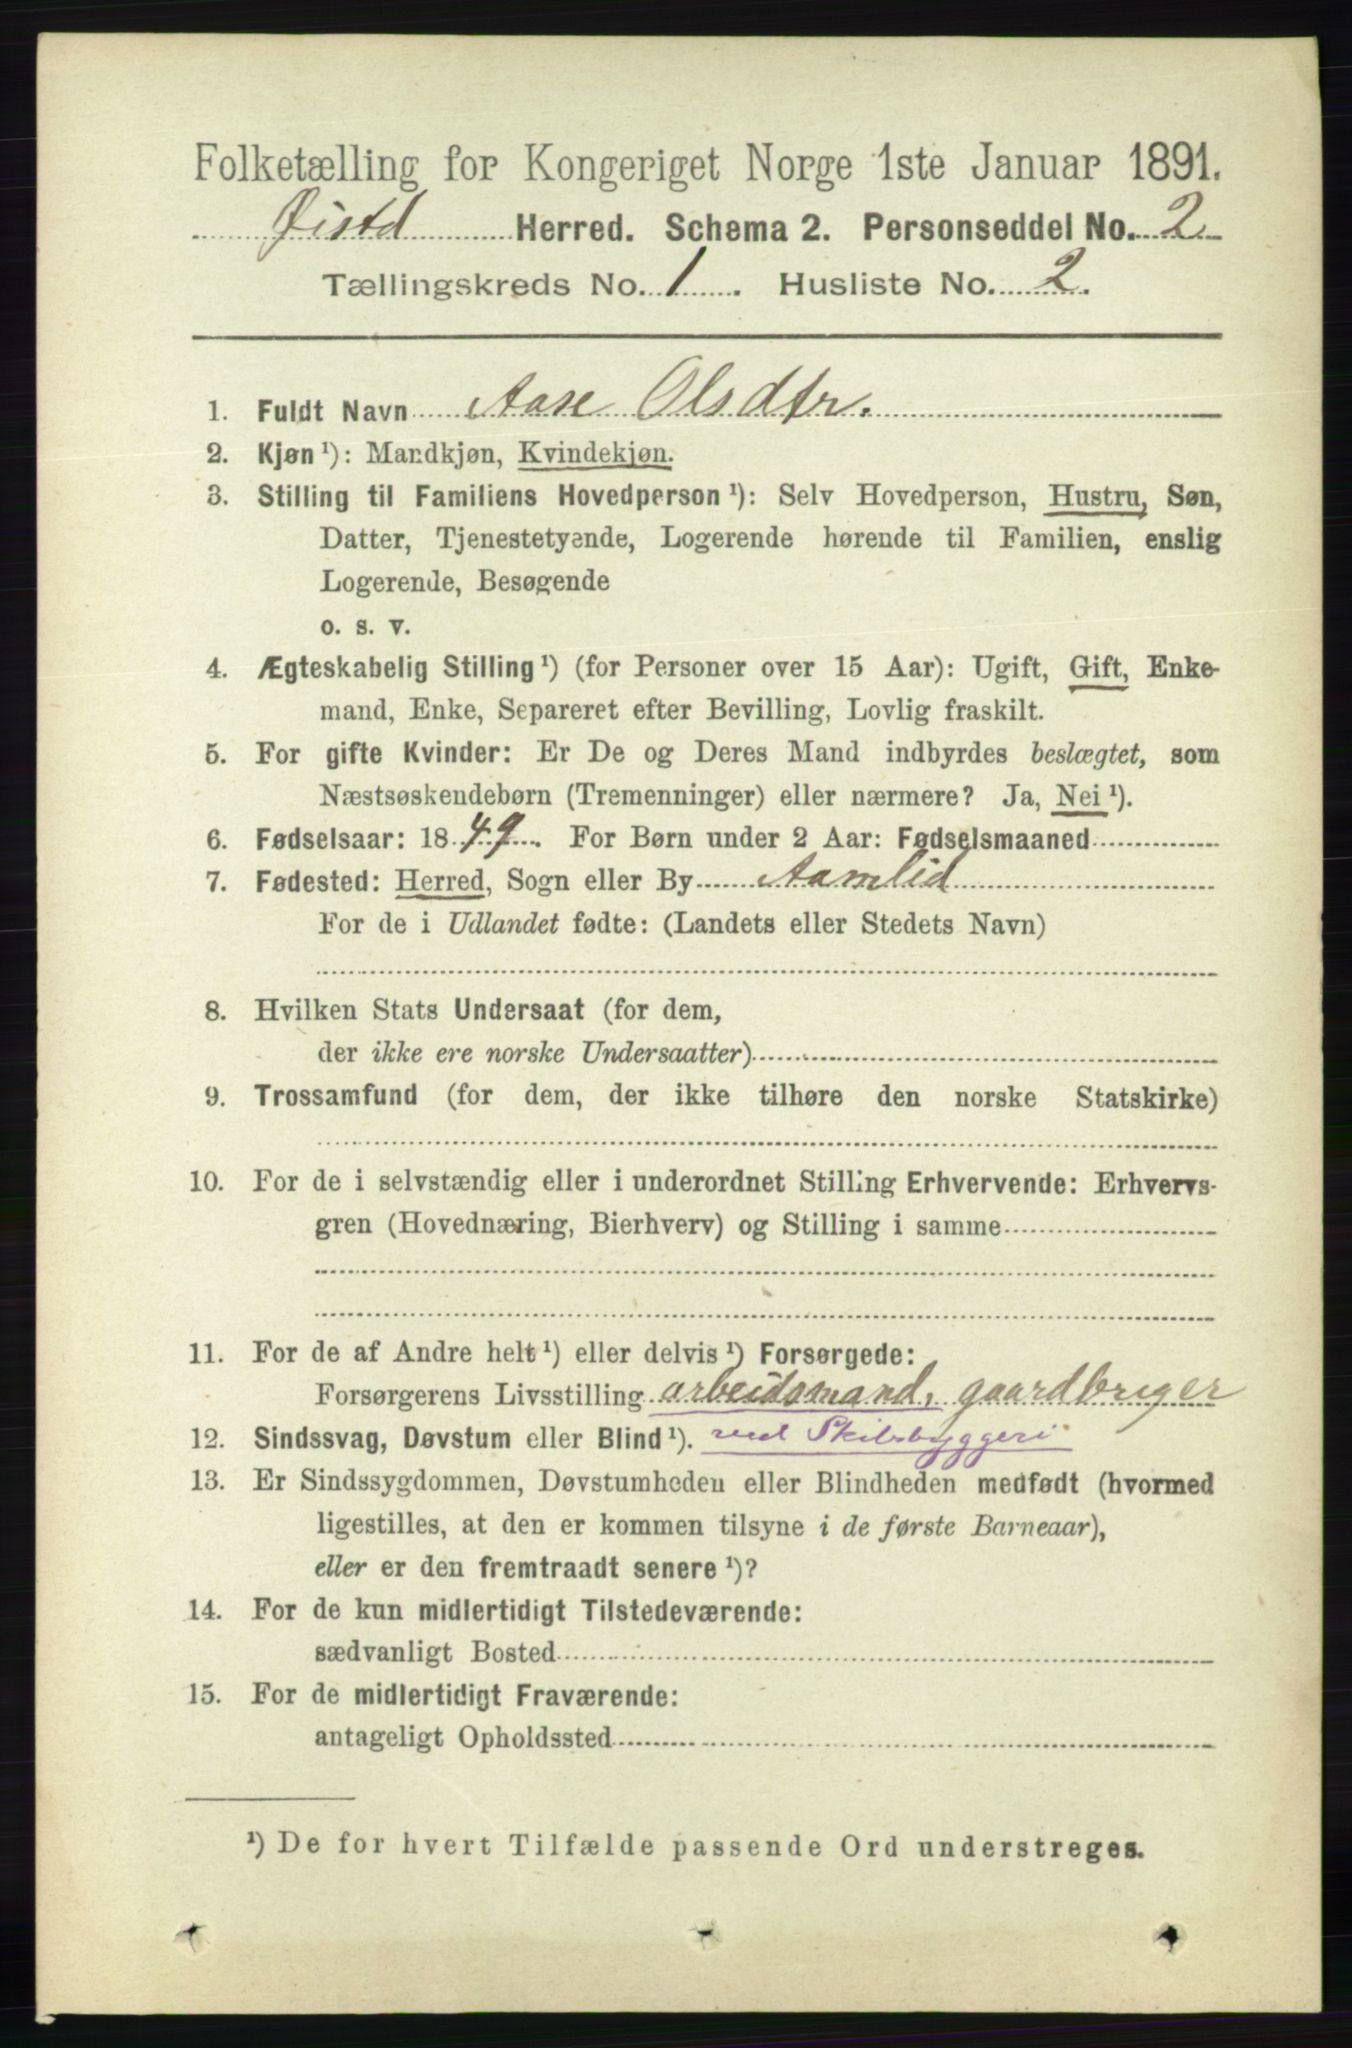 Folketælling for Kongeriget Norge 1ste Januar 1891.
Øistd Herred. Schema 2. Personseddel No. 2
Tællingskreds No. 1. Husliste No. 2.
1. Fuldt Navn Aase Olsdtr.
2. Kjøn ¹): Mandkjøn, Kvindekjøn.
3. Stilling til Familiens Hovedperson ¹): Selv Hovedperson, Hustru, Søn,
Datter, Tjenestetyende, Logerende hørende til Familien, enslig
Logerende, Besøgende
o. s. v.
4. Ægteskabelig Stilling ¹) (for Personer over 15 Aar): Ugift, Gift, Enke-
mand, Enke, Separeret efter Bevilling, Lovlig fraskilt.
5. For gifte Kvinder: Er De og Deres Mand indbyrdes beslægtet, som
Næstsøskendebørn (Tremenninger) eller nærmere? Ja, Nei ¹).
6. Fødselsaar: 1849. For Børn under 2 Aar: Fødselsmaaned
7. Fødested: Herred, Sogn eller By Aamlid
For de i Udlandet fødte: (Landets eller Stedets Navn)
8. Hvilken Stats Undersaat (for dem,
der ikke ere norske Undersaatter)
9. Trossamfund (for dem, der ikke tilhøre den norske Statskirke)
10. For de i selvstændig eller i underordnet Stilling Erhvervende: Erhvervs-
gren (Hovednæring, Bierhverv) og Stilling i samme
11. For de af Andre helt ¹) eller delvis ¹) Forsørgede:
Forsørgerens Livsstilling arbeidsmand, gaardbruger
12. Sindssvag, Døvstum eller Blind ¹). ved Skibsbyggeri
13. Er Sindssygdommen, Døvstumheden eller Blindheden medfødt (hvormed
ligestilles, at den er kommen tilsyne i de første Barneaar),
eller er den fremtraadt senere ¹)?
14. For de kun midlertidigt Tilstedeværende:
sædvanligt Bosted
15. For de midlertidigt Fraværende:
antageligt Opholdssted
¹) De for hvert Tilfælde passende Ord understreges.